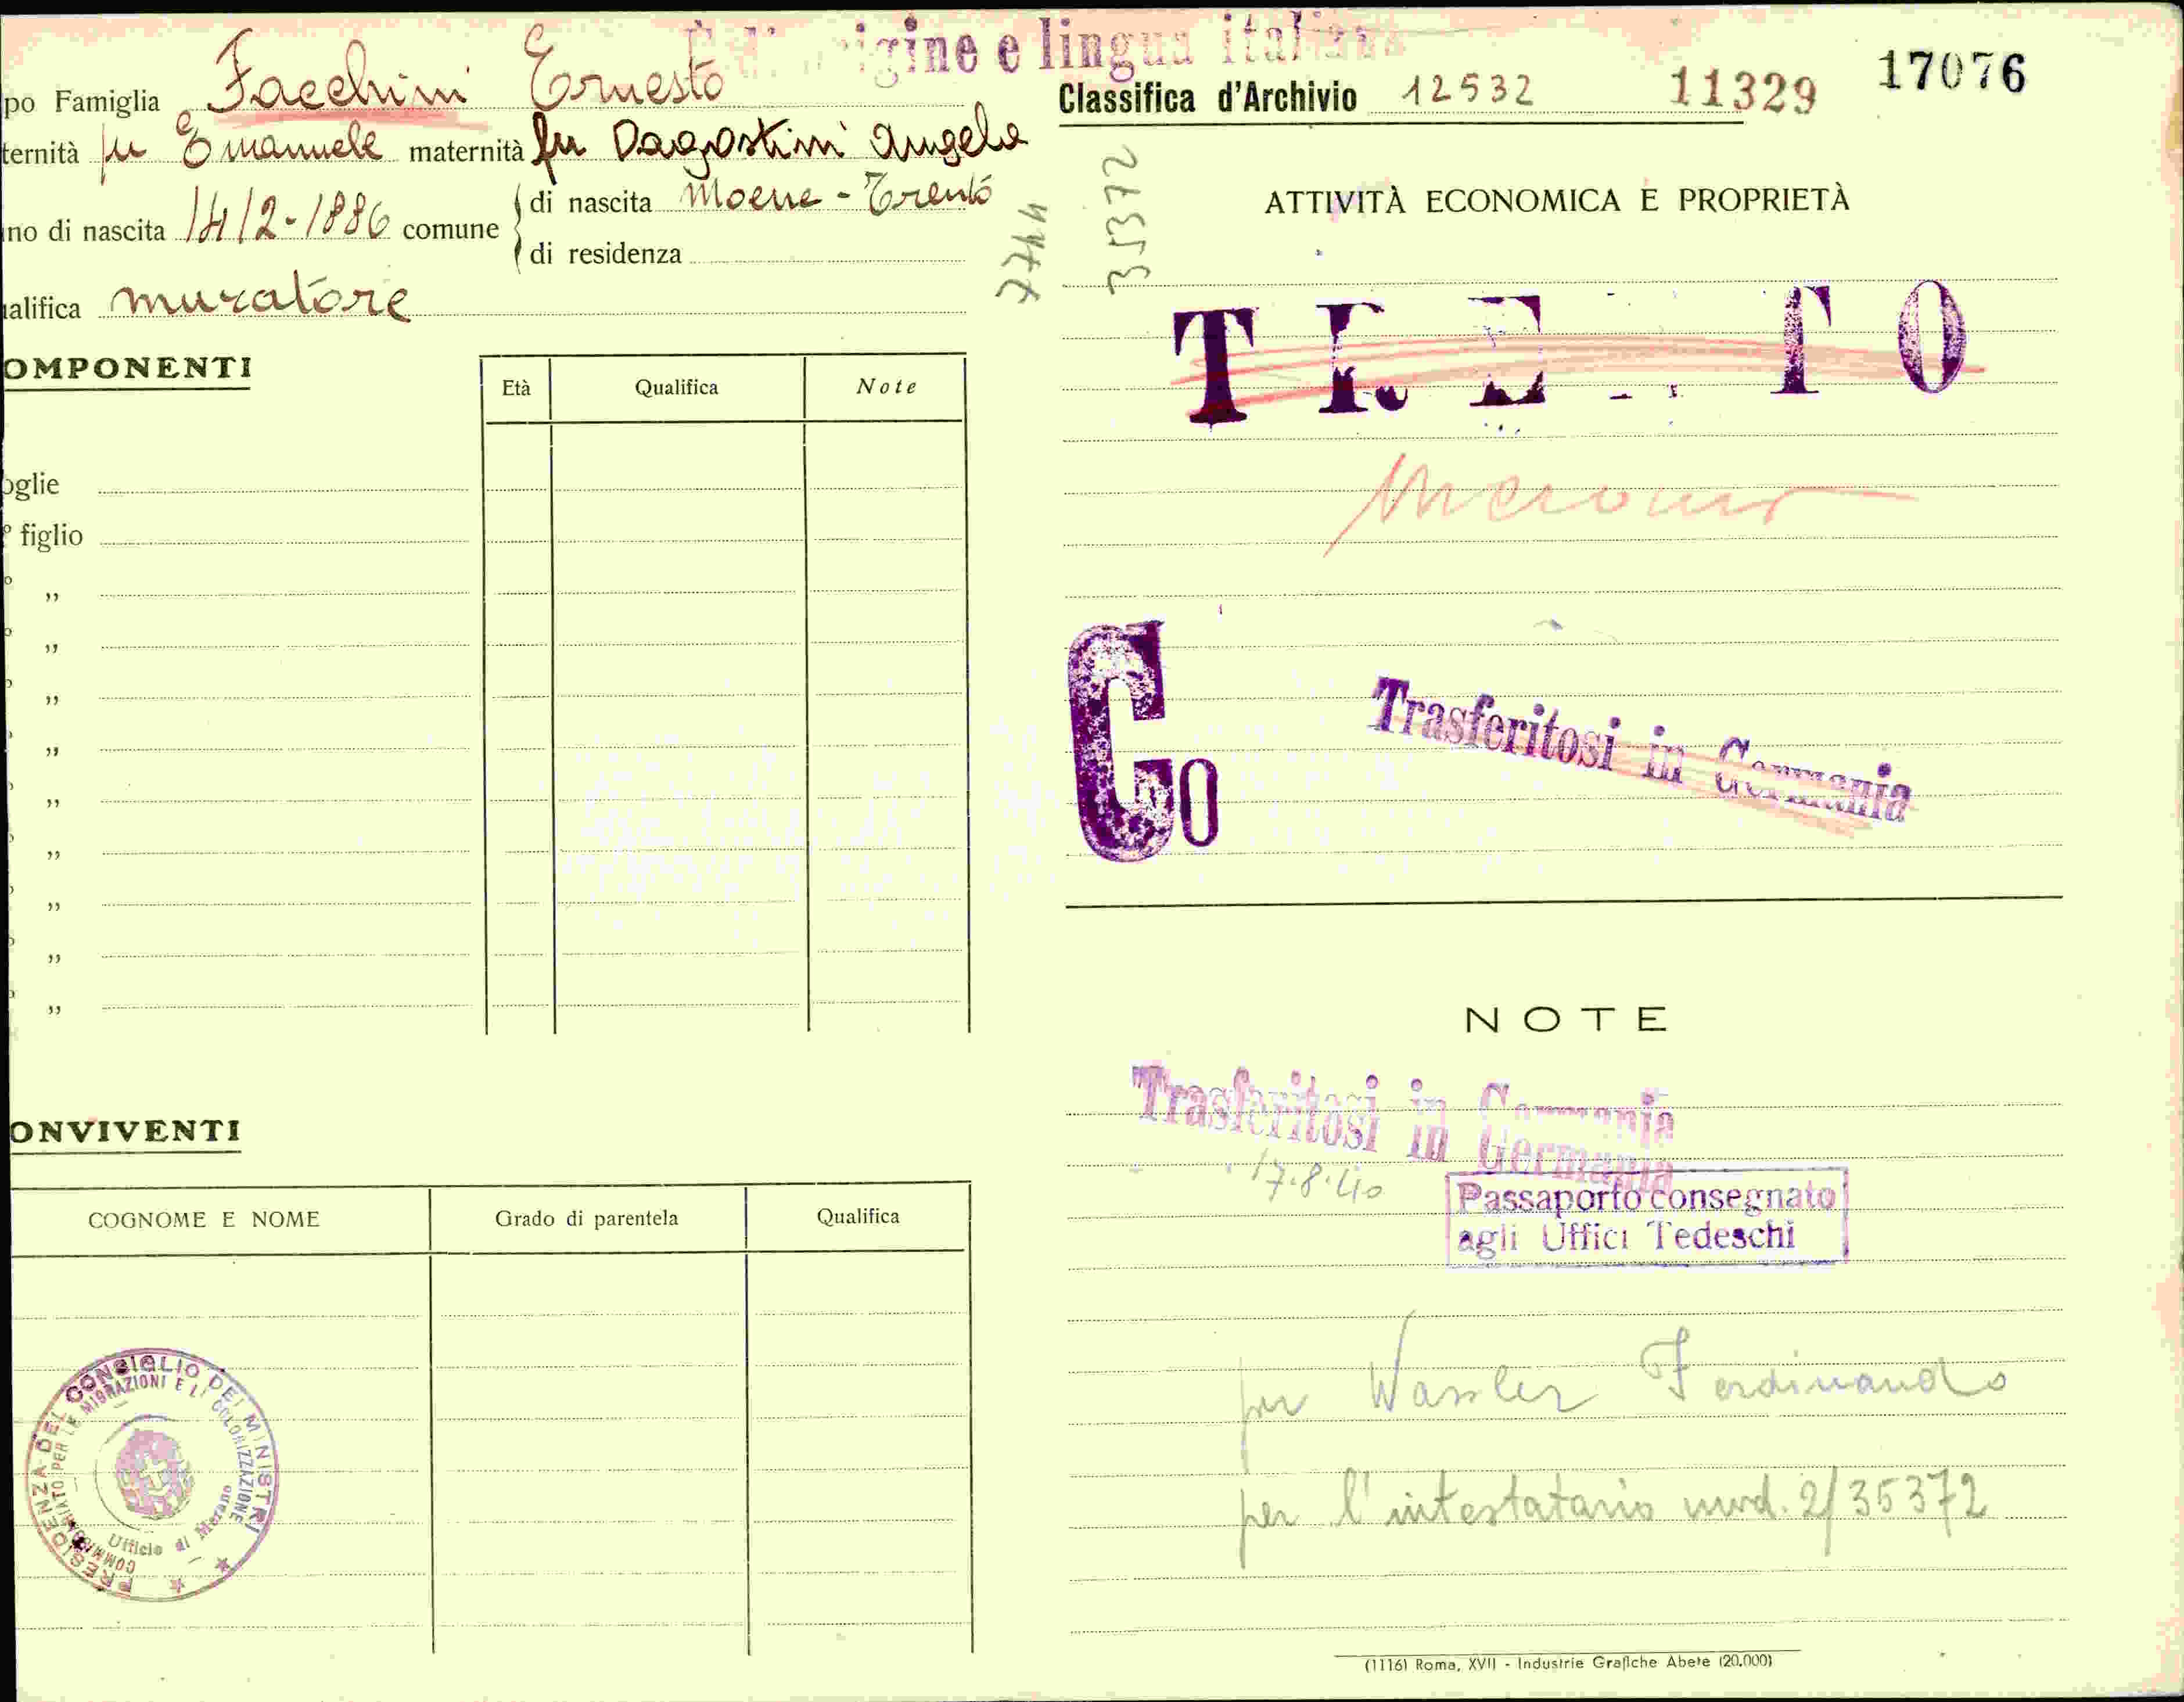 igine e lingua italiana
po Famiglia Facchini Ernesto
ternità fu Emanuele maternità fu Dagostini Angela
no di nascita 14/2-1886 comune
di nascita Moena - Trento
di residenza
alifica muratore
OMPONENTI
Età Qualifica Note
oglie
° figlio
„
„
„
„
„
„
„
„
„
ONVIVENTI
COGNOME E NOME Grado di parentela Qualifica
PRESIDENZA DEL CONSIGLIO DEI MINISTRI
COMMISSARIATO PER LE MIGRAZIONI E LA COLONIZZAZIONE
Ufficio di Merano
17076
Classifica d'Archivio 12532 11329
35372
ATTIVITÀ ECONOMICA E PROPRIETÀ
TRENTO
Merano
Co
Trasferitosi in Germania
NOTE
Trasferitosi in Germania
17.8.40
Passaporto consegnato
agli Uffici Tedeschi
per Wassler Ferdinando
per l'intestatario mod. 2/35372
(1116) Roma, XVII - Industrie Grafiche Abete (20.000)